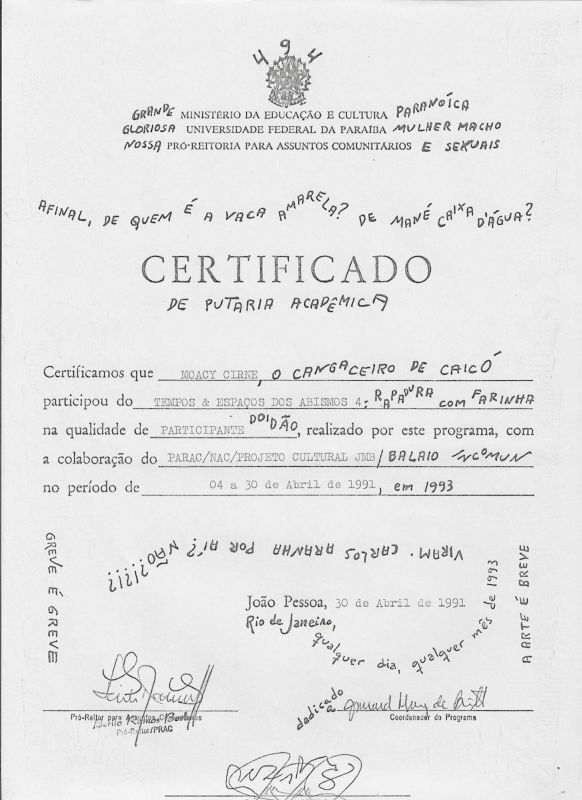 494
GRANDE MINISTÉRIO DA EDUCAÇÃO E CULTURA PARANOÍCA
GLORIOSA UNIVERSIDADE FEDERAL DA PARAÍBA MULHER MACHO
NOSSA PRÓ-REITORIA PARA ASSUNTOS COMUNITÁRIOS E SEXUAIS
AFINAL, DE QUEM É A VACA AMARELA? DE MANÉ CAIXA D'ÁGUA?
CERTIFICADO
DE PUTARIA ACADÊMICA
Certificamos que MOACY CIRNE, O CANGACEIRO DE CAICÓ
participou do TEMPOS & ESPAÇOS DOS ABISMOS 4: RAPADURA COM FARINHA
na qualidade de PARTICIPANTE DOIDÃO, realizado por este programa, com
a colaboração do PARAC/NAC/PROJETO CULTURAL JMB/BALAIO INCOMUN
no período de 04 a 30 de Abril de 1991, em 1993
VIRAM. CARLOS ARANHA POR AI? NÃO?????
GREVE É GREVE
A ARTE É BREVE
João Pessoa, 30 de Abril de 1991
Rio de Janeiro, qualquer dia, qualquer mês de 1993
dedicado a
Pró-Reitor para Assuntos Comunitários
Pró-Reitor/PRAC
Coordenador do Programa